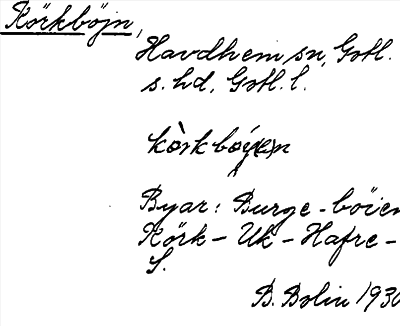 Körkböjn,
Havdhem sn, Gotl.
s. hd, Gotl. l.
Byar: Burge - böien
Körk - Uk - Hafre -
S.
B. Bolin 1930